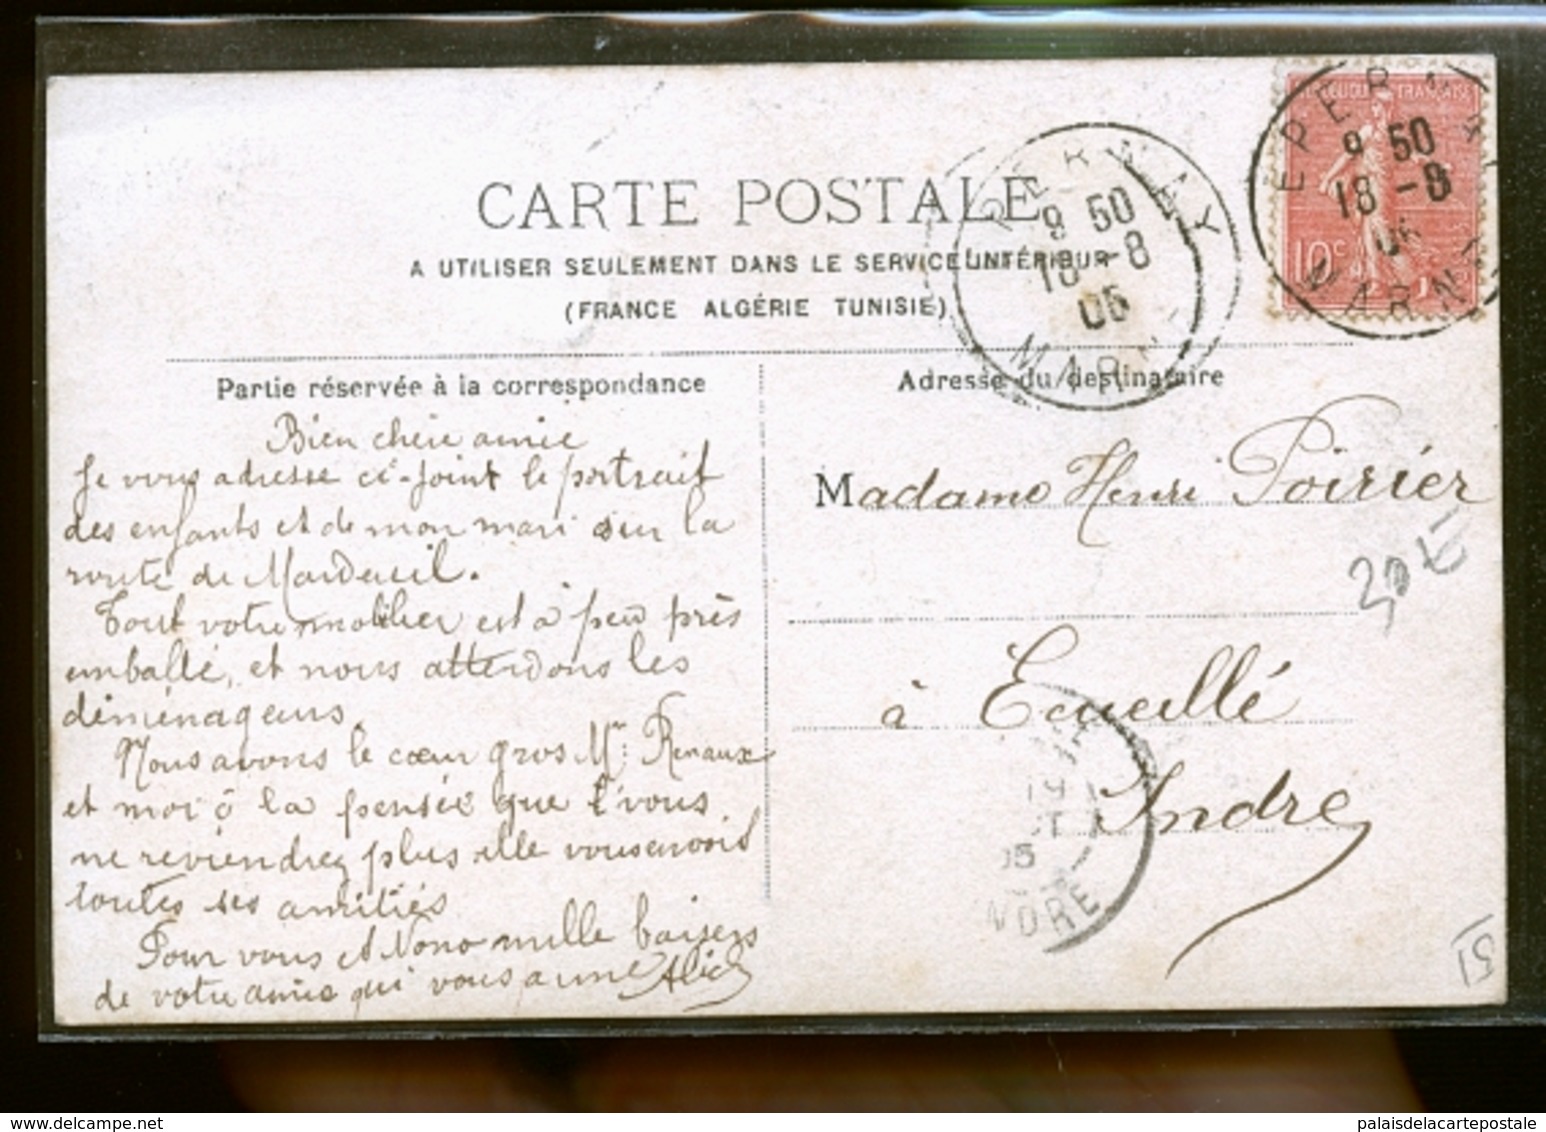 CARTE POSTALE
A UTILISER SEULEMENT DANS LE SERVICE INTÉRIEUR
(FRANCE ALGÉRIE TUNISIE)
EPERNAY
9 50
18 -8
05
MARNE
EPERNAY
9 50
18 -8
MARNE
FRANÇAISE
10c
Partie réservée à la correspondance
Bien chère amie
Je vous adresse ci-joint le portrait
des enfants et de mon mari sur la
route de Mardeuil.
Tout votre mobilier est à peu près
emballé, et nous attendons les
déménageurs.
Nous avons le cœur gros Mr Renaux
et moi à la pensée que vous
ne reviendrez plus elle vous envoie
toutes ses amitiés
Pour vous et Nono mille baisers
de votre amie qui vous aime Alice
Adresse du destinataire
Madame Henri Poirier
à Ecueillé
Indre
20 E
19
05
INDRE
15
delcampe.net
palaisdelacartepostale